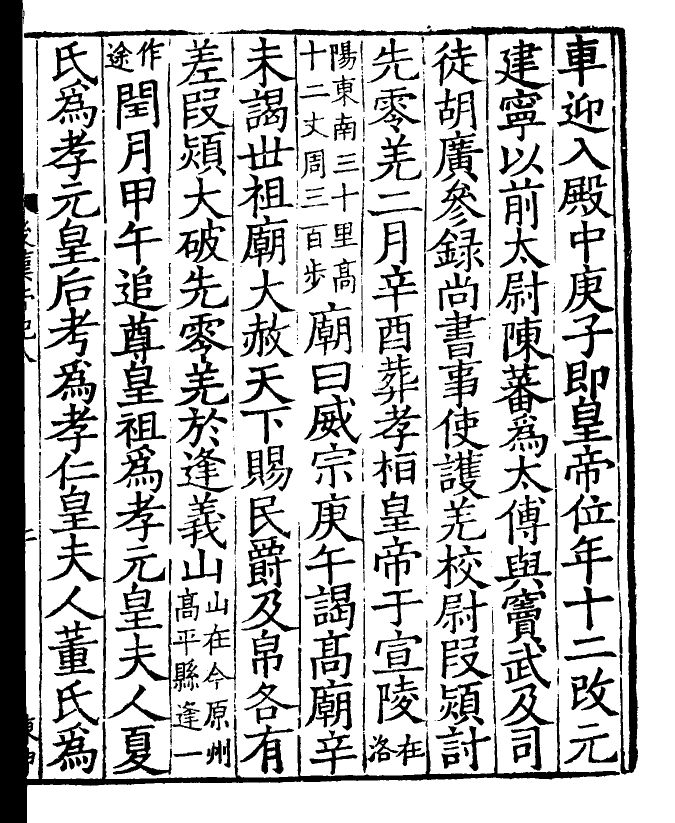 車迎入殿中庚子即皇帝位年十二改元
建寧以前太尉陳蕃爲太傅與竇武及司
徒胡廣參録尚書事使護羌校尉段熲討
先零羌二月辛酉葬孝桓皇帝于宣陵在洛
陽東南三十里髙十二丈周三百步廟曰威宗庚午謁髙廟辛
未謁世祖廟大赦天下賜民爵及帛各有
差段熲大破先零羌於逢義山山在今原州髙平縣逢一
作途閏月甲午追尊皇祖爲孝元皇夫人夏
氏爲孝元皇后考爲孝仁皇夫人董氏爲